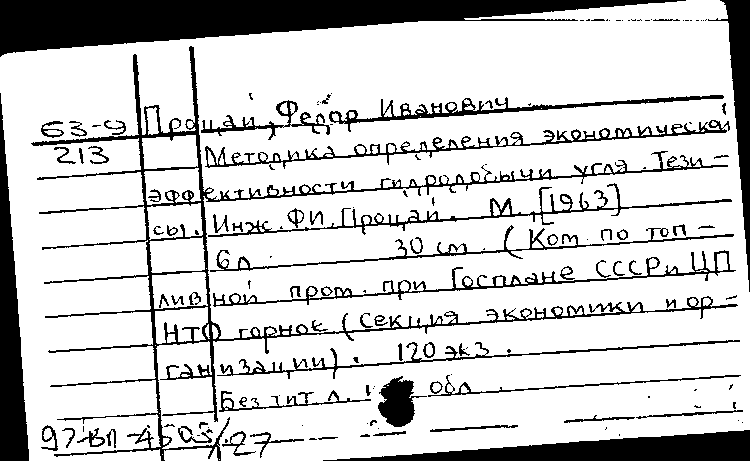 63-9 Процай, Федор Иванович
213 Методика определения экономической
эффективности гидродобычи угля. Тези-
сы. Инж. Ф.И. Процай. М., [1963]
6 л. 30 см. (Ком. по топ-
ливной пром. при Госплане СССР и ЦП
НТО горное (Секция экономики и ор-
ганизации). 120 экз.
Без тит. л. и обл.
97-ВП-4505/27